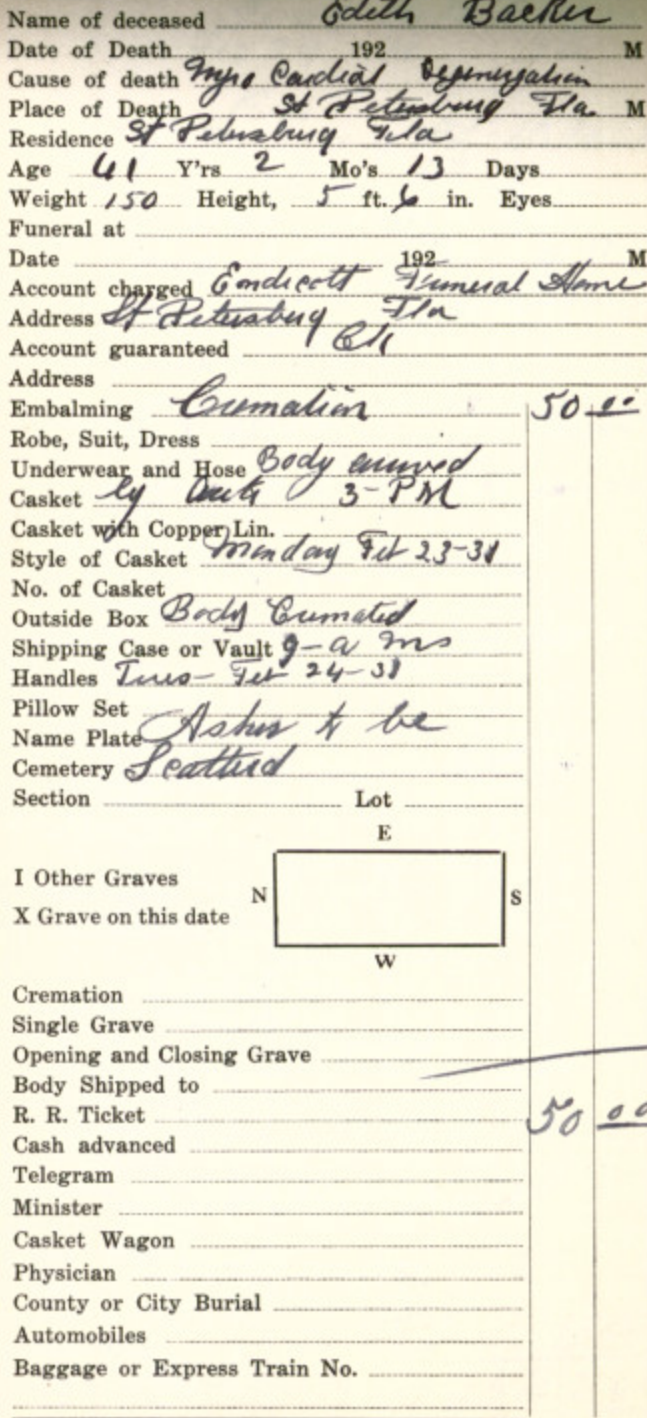 Name of deceased Edith Backer
Date of Death 192 M
Cause of death Myo Cardial Degeneration
Place of Death St Petersburg Fla M
Residence St Petersburg Fla
Age 41 Y'rs 2 Mo's 13 Days
Weight 150 Height, 5 ft. 6 in. Eyes
Funeral at
Date 192 M
Account charged Endicott Funeral Home
Address St Petersburg Fla
Account guaranteed
Address
Embalming Cremation 50 00
Robe, Suit, Dress
Underwear and Hose Body arrived
Casket by Auto 3-PM
Casket with Copper Lin.
Style of Casket Monday Feb 23-31
No. of Casket
Outside Box Body Cremated
Shipping Case or Vault 9-a ms
Handles Tues- Feb 24-31
Pillow Set
Name Plate Ashes to be
Cemetery Scatterd
Section Lot
E
I Other Graves
N S
X Grave on this date
W
Cremation
Single Grave
Opening and Closing Grave
Body Shipped to
R. R. Ticket 50 00
Cash advanced
Telegram
Minister
Casket Wagon
Physician
County or City Burial
Automobiles
Baggage or Express Train No.